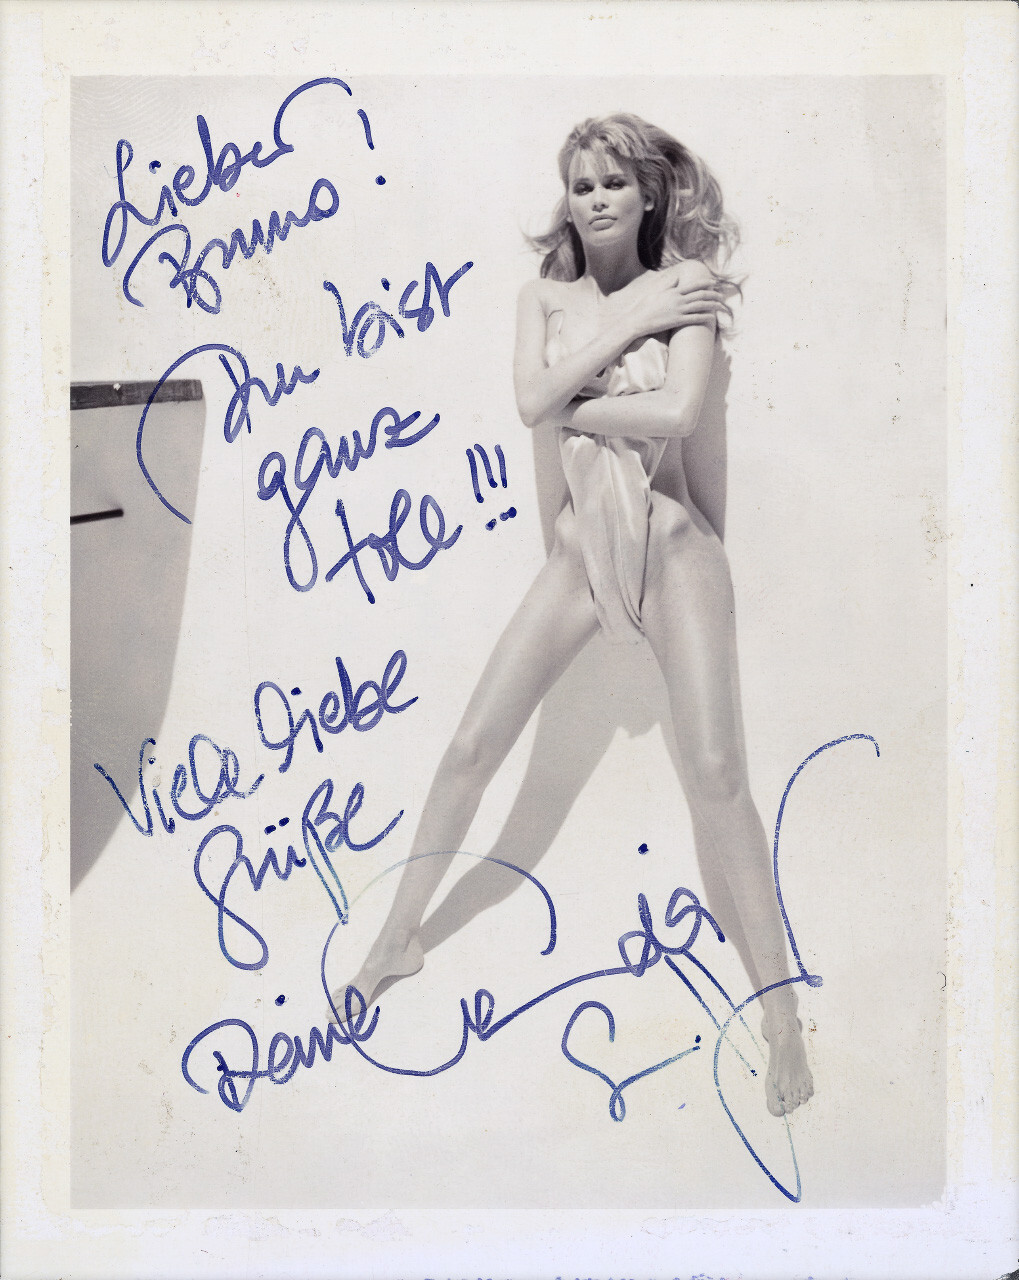 Lieber
Bruno!
Du bist
ganz
toll!!!
Viele liebe
Grüße
Deine Claudia